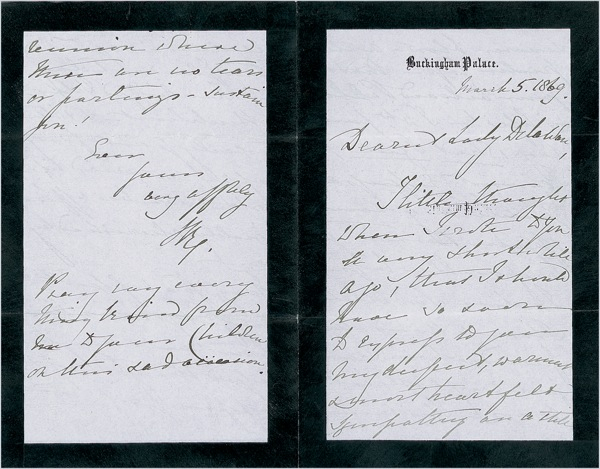 Buckingham Palace.
March 5. 1869.
Dearest Lady Delawarr,
I little thought
when I wrote to you
a very short while
ago, that I should
have so soon
to express to you
my deepest, warmest
& most heartfelt
sympathy on
reunion where
there are no tears
or partings - sustain
you!
Ever
yours
very affly
Pray say every
thing kind from
me to your Children
on this sad occasion.